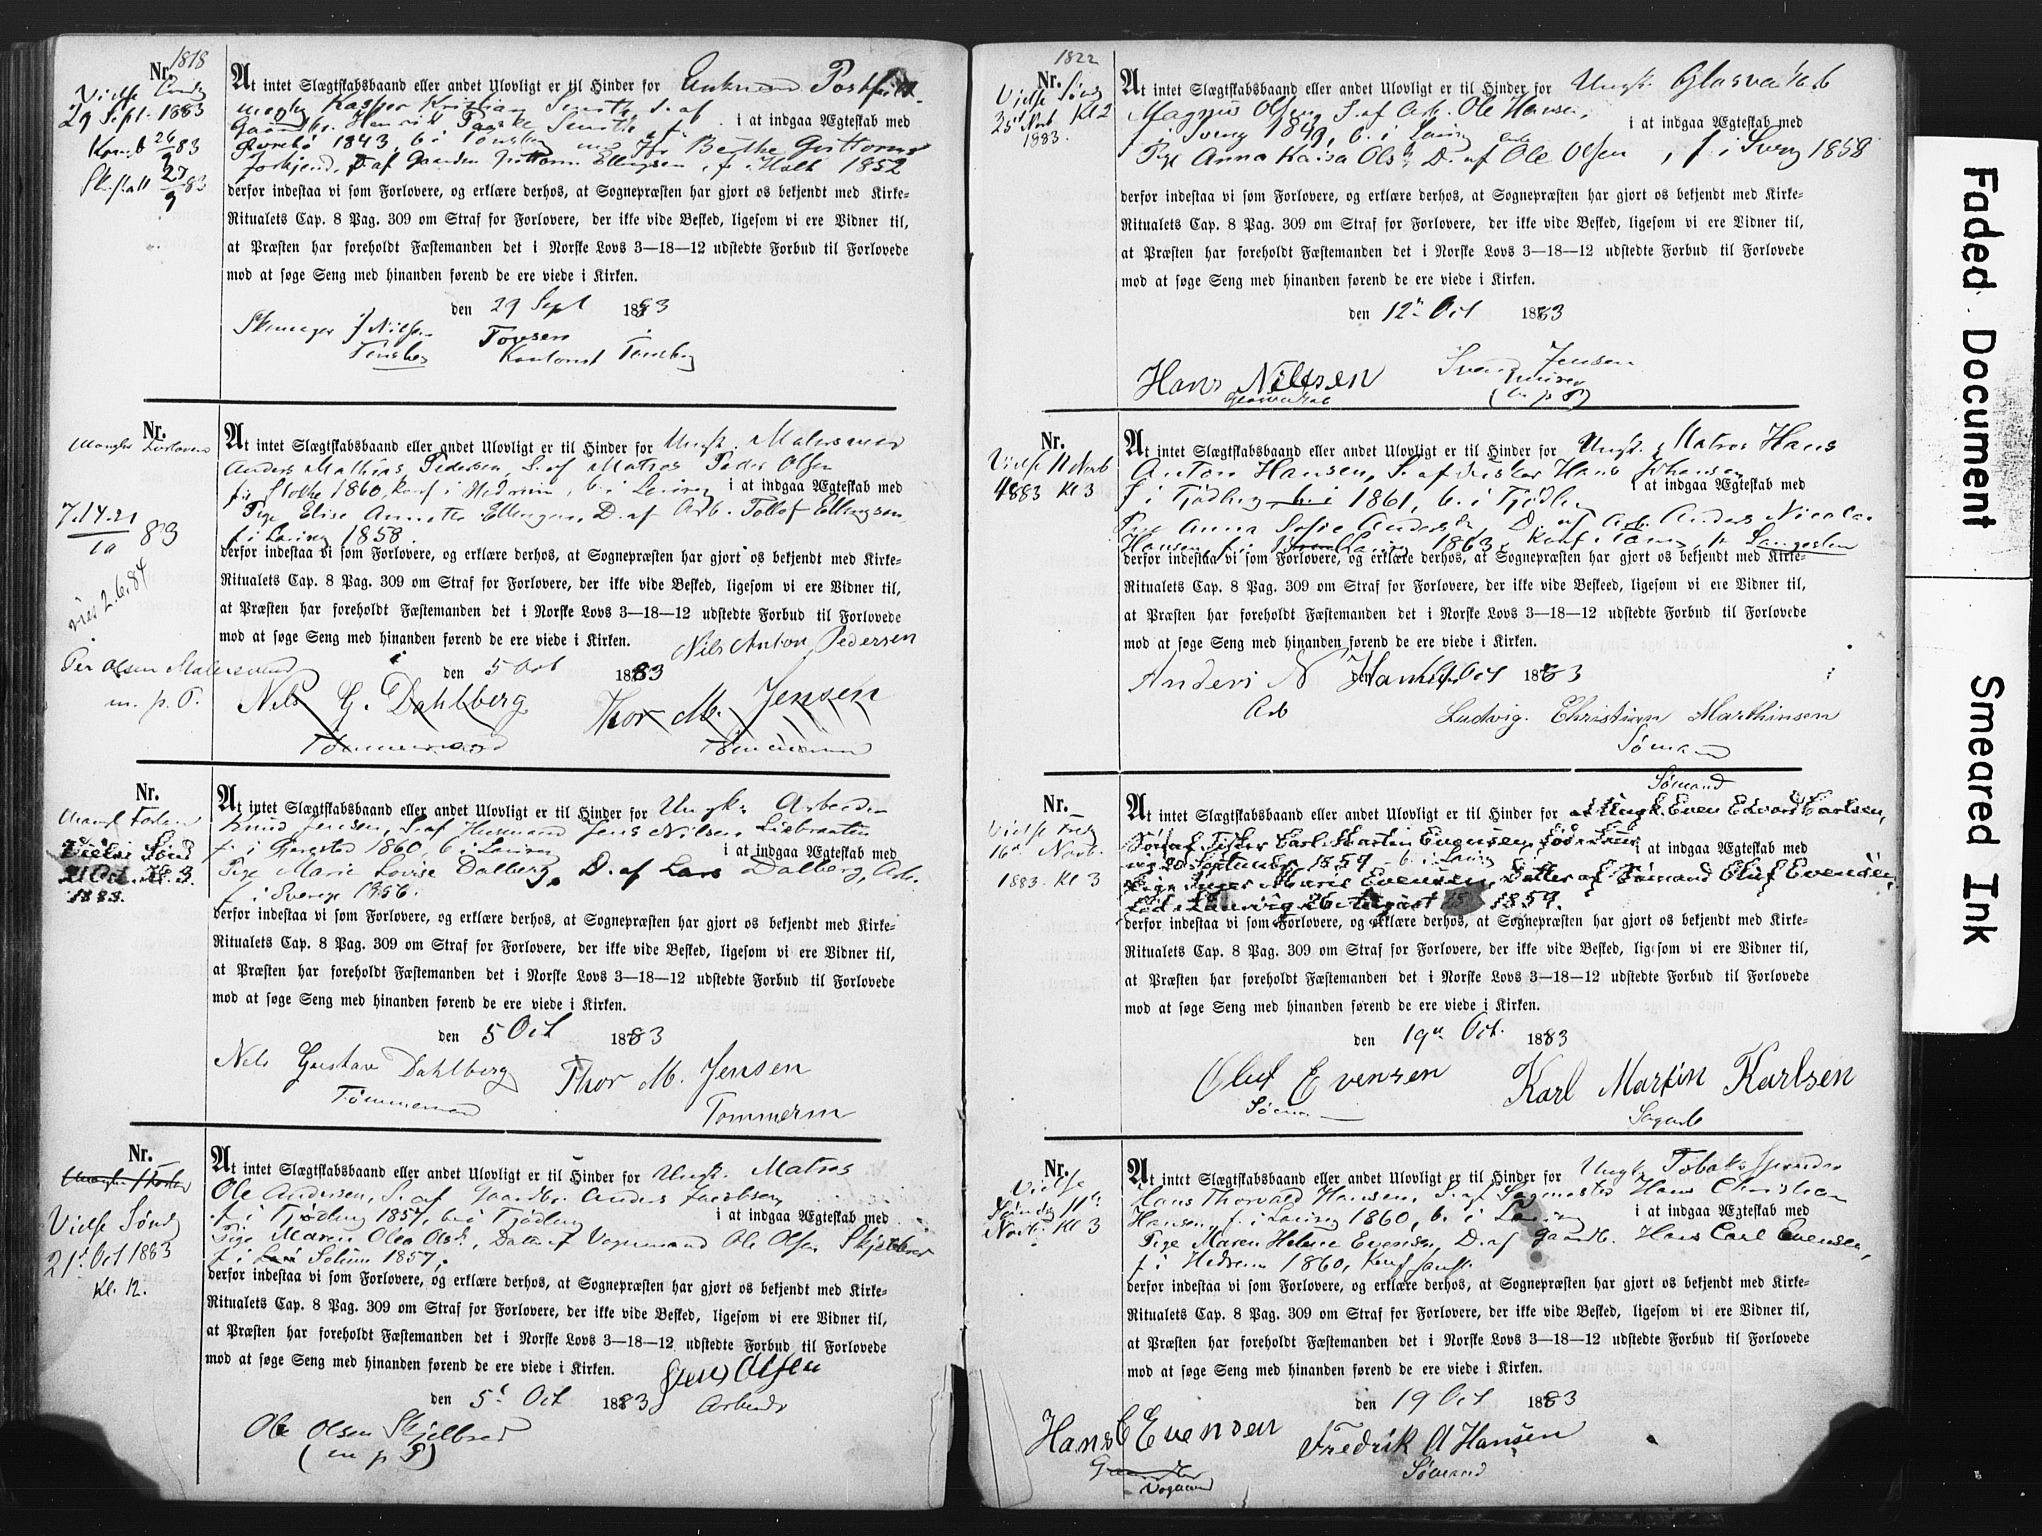 1818
Nr.
Vielse
29 Sept. 1883
At intet Slægtskabsbaand eller andet Ulovligt er til Hinder for Enkemand
Kasper Kristian S. af
Gaardbr. Henrik i at indgaa Ægteskab med
1843, b. i Tønsberg Jfr Berthe Guttorms
D. af Gaardm Guttorm Ellingsen, f. i 1852
derfor indestaa vi som Forlovere, og erklære derhos, at Sognepræsten har gjort os bekjendt med Kirke-
Ritualets Cap. 8 Pag. 309 om Straf for Forlovere, der ikke vide Besked, ligesom vi ere Vidner til,
at Præsten har foreholdt Fæstemanden det i Norske Lovs 3—18—12 udstedte Forbud til Forlovede
mod at søge Seng med hinanden førend de ere viede i Kirken.
den 29 Sept 1883
J Nilsen
Tønsberg Kontorist Tønsberg
Nr.
Mangler Forlovere
7.14.21
10 83
viet 2.6.84
At intet Slægtskabsbaand eller andet Ulovligt er til Hinder for Ungk. Malersvend
Anders Mathias Pedersen, S. af Matros Peder Olsen
f. i Stokke 1860, konf. i Hedrum, b. i Laurvig i at indgaa Ægteskab med
Pige Elise Annette Ellingsen, D. af Arb. Tollof Ellingsen
f. i Laurvig 1858.
derfor indestaa vi som Forlovere, og erklære derhos, at Sognepræsten har gjort os bekjendt med Kirke-
Ritualets Cap. 8 Pag. 309 om Straf for Forlovere, der ikke vide Besked, ligesom vi ere Vidner til,
at Præsten har foreholdt Fæstemanden det i Norske Lovs 3—18—12 udstedte Forbud til Forlovede
mod at søge Seng med hinanden førend de ere viede i Kirken.
Nils Anton Pedersen
den 5 Oct 1883
Per Olsen Malersvend
m. p. P.
Nils G. Dahlberg Thor M. Jensen
Tømmermand Tømmermand
Nr.
Mangl Forlovere
Vielse Sønd
21 Oct. Kl. 3.
1883.
At intet Slægtskabsbaand eller andet Ulovligt er til Hinder for Ungk. Arbeider
Knud Jensen, S. af Husmand Jens Nilsen
f. i 1860, b. i Laurvig i at indgaa Ægteskab med
Pige Marie Lovise Dalberg, D. af Lars Dalberg, Arb.
f. i Sverige 1856.
derfor indestaa vi som Forlovere, og erklære derhos, at Sognepræsten har gjort os bekjendt med Kirke-
Ritualets Cap. 8 Pag. 309 om Straf for Forlovere, der ikke vide Besked, ligesom vi ere Vidner til,
at Præsten har foreholdt Fæstemanden det i Norske Lovs 3—18—12 udstedte Forbud til Forlovede
mod at søge Seng med hinanden førend de ere viede i Kirken.
den 5 Oct 1883
Nils Gustav Dahlberg Thor M. Jensen
Tømmermand Tommerm
Nr.
Vielse Sønd
21 Oct 1883
Kl. 12.
At intet Slægtskabsbaand eller andet Ulovligt er til Hinder for Ungk. Matros
Ole Andersen, S. af Gaardbr. Anders Jacobsen,
f. i Tjødling 1857, b. i Tjødling i at indgaa Ægteskab med
Pige Maren Olea Olsd., Datter af Vognmand Ole Olsen Skjelbred
f. i Solum 1857,
derfor indestaa vi som Forlovere, og erklære derhos, at Sognepræsten har gjort os bekjendt med Kirke-
Ritualets Cap. 8 Pag. 309 om Straf for Forlovere, der ikke vide Besked, ligesom vi ere Vidner til,
at Præsten har foreholdt Fæstemanden det i Norske Lovs 3—18—12 udstedte Forbud til Forlovede
mod at søge Seng med hinanden førend de ere viede i Kirken.
Olsen
den 5 Oct 1883 Arbeider
Ole Olsen Skjelbred
(m p P)
1822
Nr.
Vielse Sønd
25 Novb Kl 2
1883.
At intet Slægtskabsbaand eller andet Ulovligt er til Hinder for Ungk. Glasværksarb
Magnus Olsen, S. af Arb. Ole Hansen,
b. i Laurvig i at indgaa Ægteskab med
Pige Anna Kaisa Olsd, D. af Ole Olsen, f. i Sverig 1858
derfor indestaa vi som Forlovere, og erklære derhos, at Sognepræsten har gjort os bekjendt med Kirke-
Ritualets Cap. 8 Pag. 309 om Straf for Forlovere, der ikke vide Besked, ligesom vi ere Vidner til,
at Præsten har foreholdt Fæstemanden det i Norske Lovs 3—18—12 udstedte Forbud til Forlovede
mod at søge Seng med hinanden førend de ere viede i Kirken.
den 12 Oct 1883
Hans Nilsen Jensen
(m p P)
Nr.
Vielse 11 Novb
1883 Kl 3
At intet Slægtskabsbaand eller andet Ulovligt er til Hinder for Ungk. Matros Hans
Anton Hansen, S. af Fisker Hans Johansen
f. i Tjødling b. i 1861, b. i Tjødling i at indgaa Ægteskab med
Pige Anna Sofie Andersd, D. af Arb. Anders Nicolai
Hansen, f. i Laurvig 1863, Konf. i Langesten
derfor indestaa vi som Forlovere, og erklære derhos, at Sognepræsten har gjort os bekjendt med Kirke-
Ritualets Cap. 8 Pag. 309 om Straf for Forlovere, der ikke vide Beskeed, ligesom vi ere Vidner til,
at Præsten har foreholdt Fæstemanden det i Norske Lovs 3—18—12 udstedte Forbud til Forlovede
mod at søge Seng med hinanden førend de ere viede i Kirken.
Anders N Hansen den Oct 1883
Arb Ludvig Christian Marthinsen
Sømand
Nr.
Vielse Fredg
16 Novb.
1883. Kl 3
Sømand
At intet Slægtskabsbaand eller andet Ulovligt er til Hinder for Ungk. Even Edvard Carlsen,
Søn af Fisker Carl Martin Evensen, Fød i Laur-
vig 20 September 1859 b. i Laurvig i at indgaa Ægteskab med
Pige Marie Evensen, Datter af Sømand Oluf Evensen,
fød i Laurvig 26 August 1859.
derfor indestaa vi som Forlovere, og erklære derhos, at Sognepræsten har gjort os bekjendt med Kirke-
Ritualets Cap. 8 Pag. 309 om Straf for Forlovere, der ikke vide Besked, ligesom vi ere Vidner til,
at Præsten har foreholdt Fæstemanden det i Norske Lovs 3—18—12 udstedte Forbud til Forlovede
mod at søge Seng med hinanden førend de ere viede i Kirken.
den 19 Oct. 1883
Oluf Evensen Karl Martin Karlsen
Sømand Sagarb
Nr.
Vielse
Søndg 11
Novb. Kl 3
At intet Slægtskabsbaand eller andet Ulovligt er til Hinder for Ungk. Tobaksspinder
Hans Thorvald Hansen, S. af Sagmester Hans Christian
Hansen, f. i Laurvig 1860, b. i Laurvig i at indgaa Ægteskab med
Pige Maren Helene Evensen, D. af Gaardb. Hans Carl Evensen,
f. i Hedrum 1860, Konf
derfor indestaa vi som Forlovere, og erklære derhos, at Sognepræsten har gjort os bekjendt med Kirke-
Ritualets Cap. 8 Pag. 309 om Straf for Forlovere, der ikke vide Besked, ligesom vi ere Vidner til,
at Præsten har foreholdt Fæstemanden det i Norske Lovs 3—18—12 udstedte Forbud til Forlovede
mod at søge Seng med hinanden førend de ere viede i Kirken.
den 19 Oct 1883
Hans C Evensen Fredrik A Hansen
Gaardbr Sømand
Vognmd
Faded Document
Smeared Ink